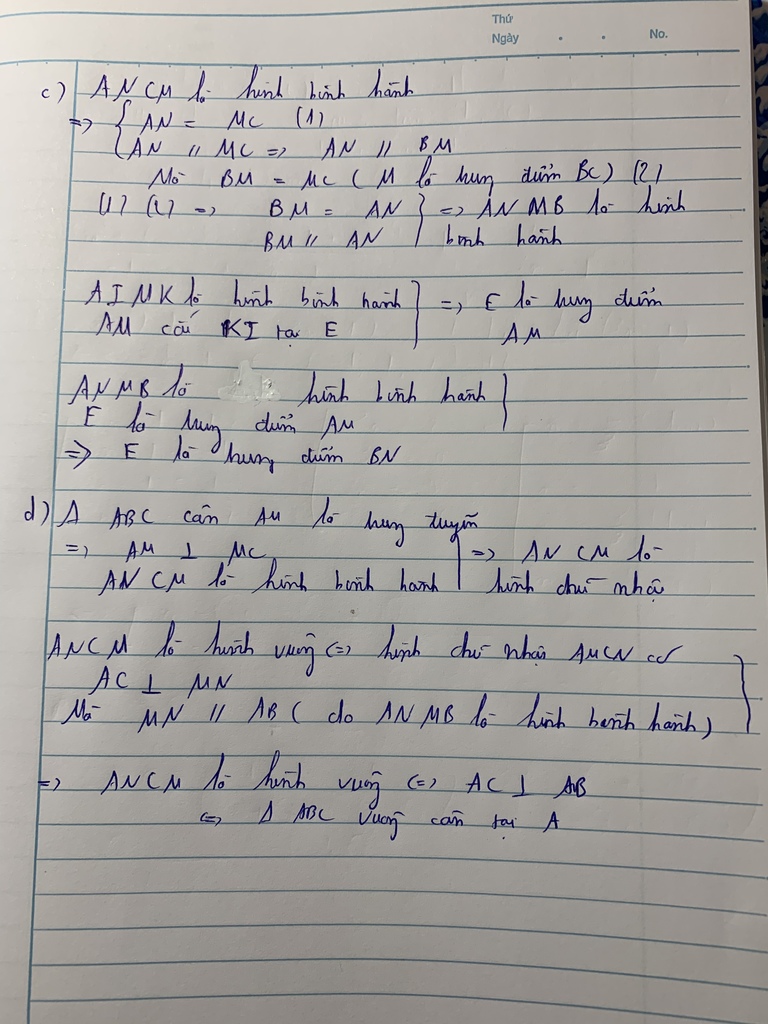 Thứ
Ngày . . No.
c) ANCM là hình bình hành
=> { AN = MC (1)
AN // MC => AN // BM
Mà BM = MC ( M là trung điểm BC) (2)
(1) (2) => BM = AN } => ANMB là hình
BM // AN bình hành
AIMK là hình bình hành } => E là trung điểm
AM cắt KI tại E AM
ANMB là hình bình hành }
E là trung điểm AM
=> E là trung điểm BN
d) Δ ABC cân AM là trung tuyến
=> AM ⊥ MC => ANCM là
ANCM là hình bình hành hình chữ nhật
ANCM là hình vuông <=> hình chữ nhật AMCN có
AC ⊥ MN
Mà MN // AB ( do ANMB là hình bình hành) }
=> ANCM là hình vuông <=> AC ⊥ AB
<=> Δ ABC vuông cân tại A